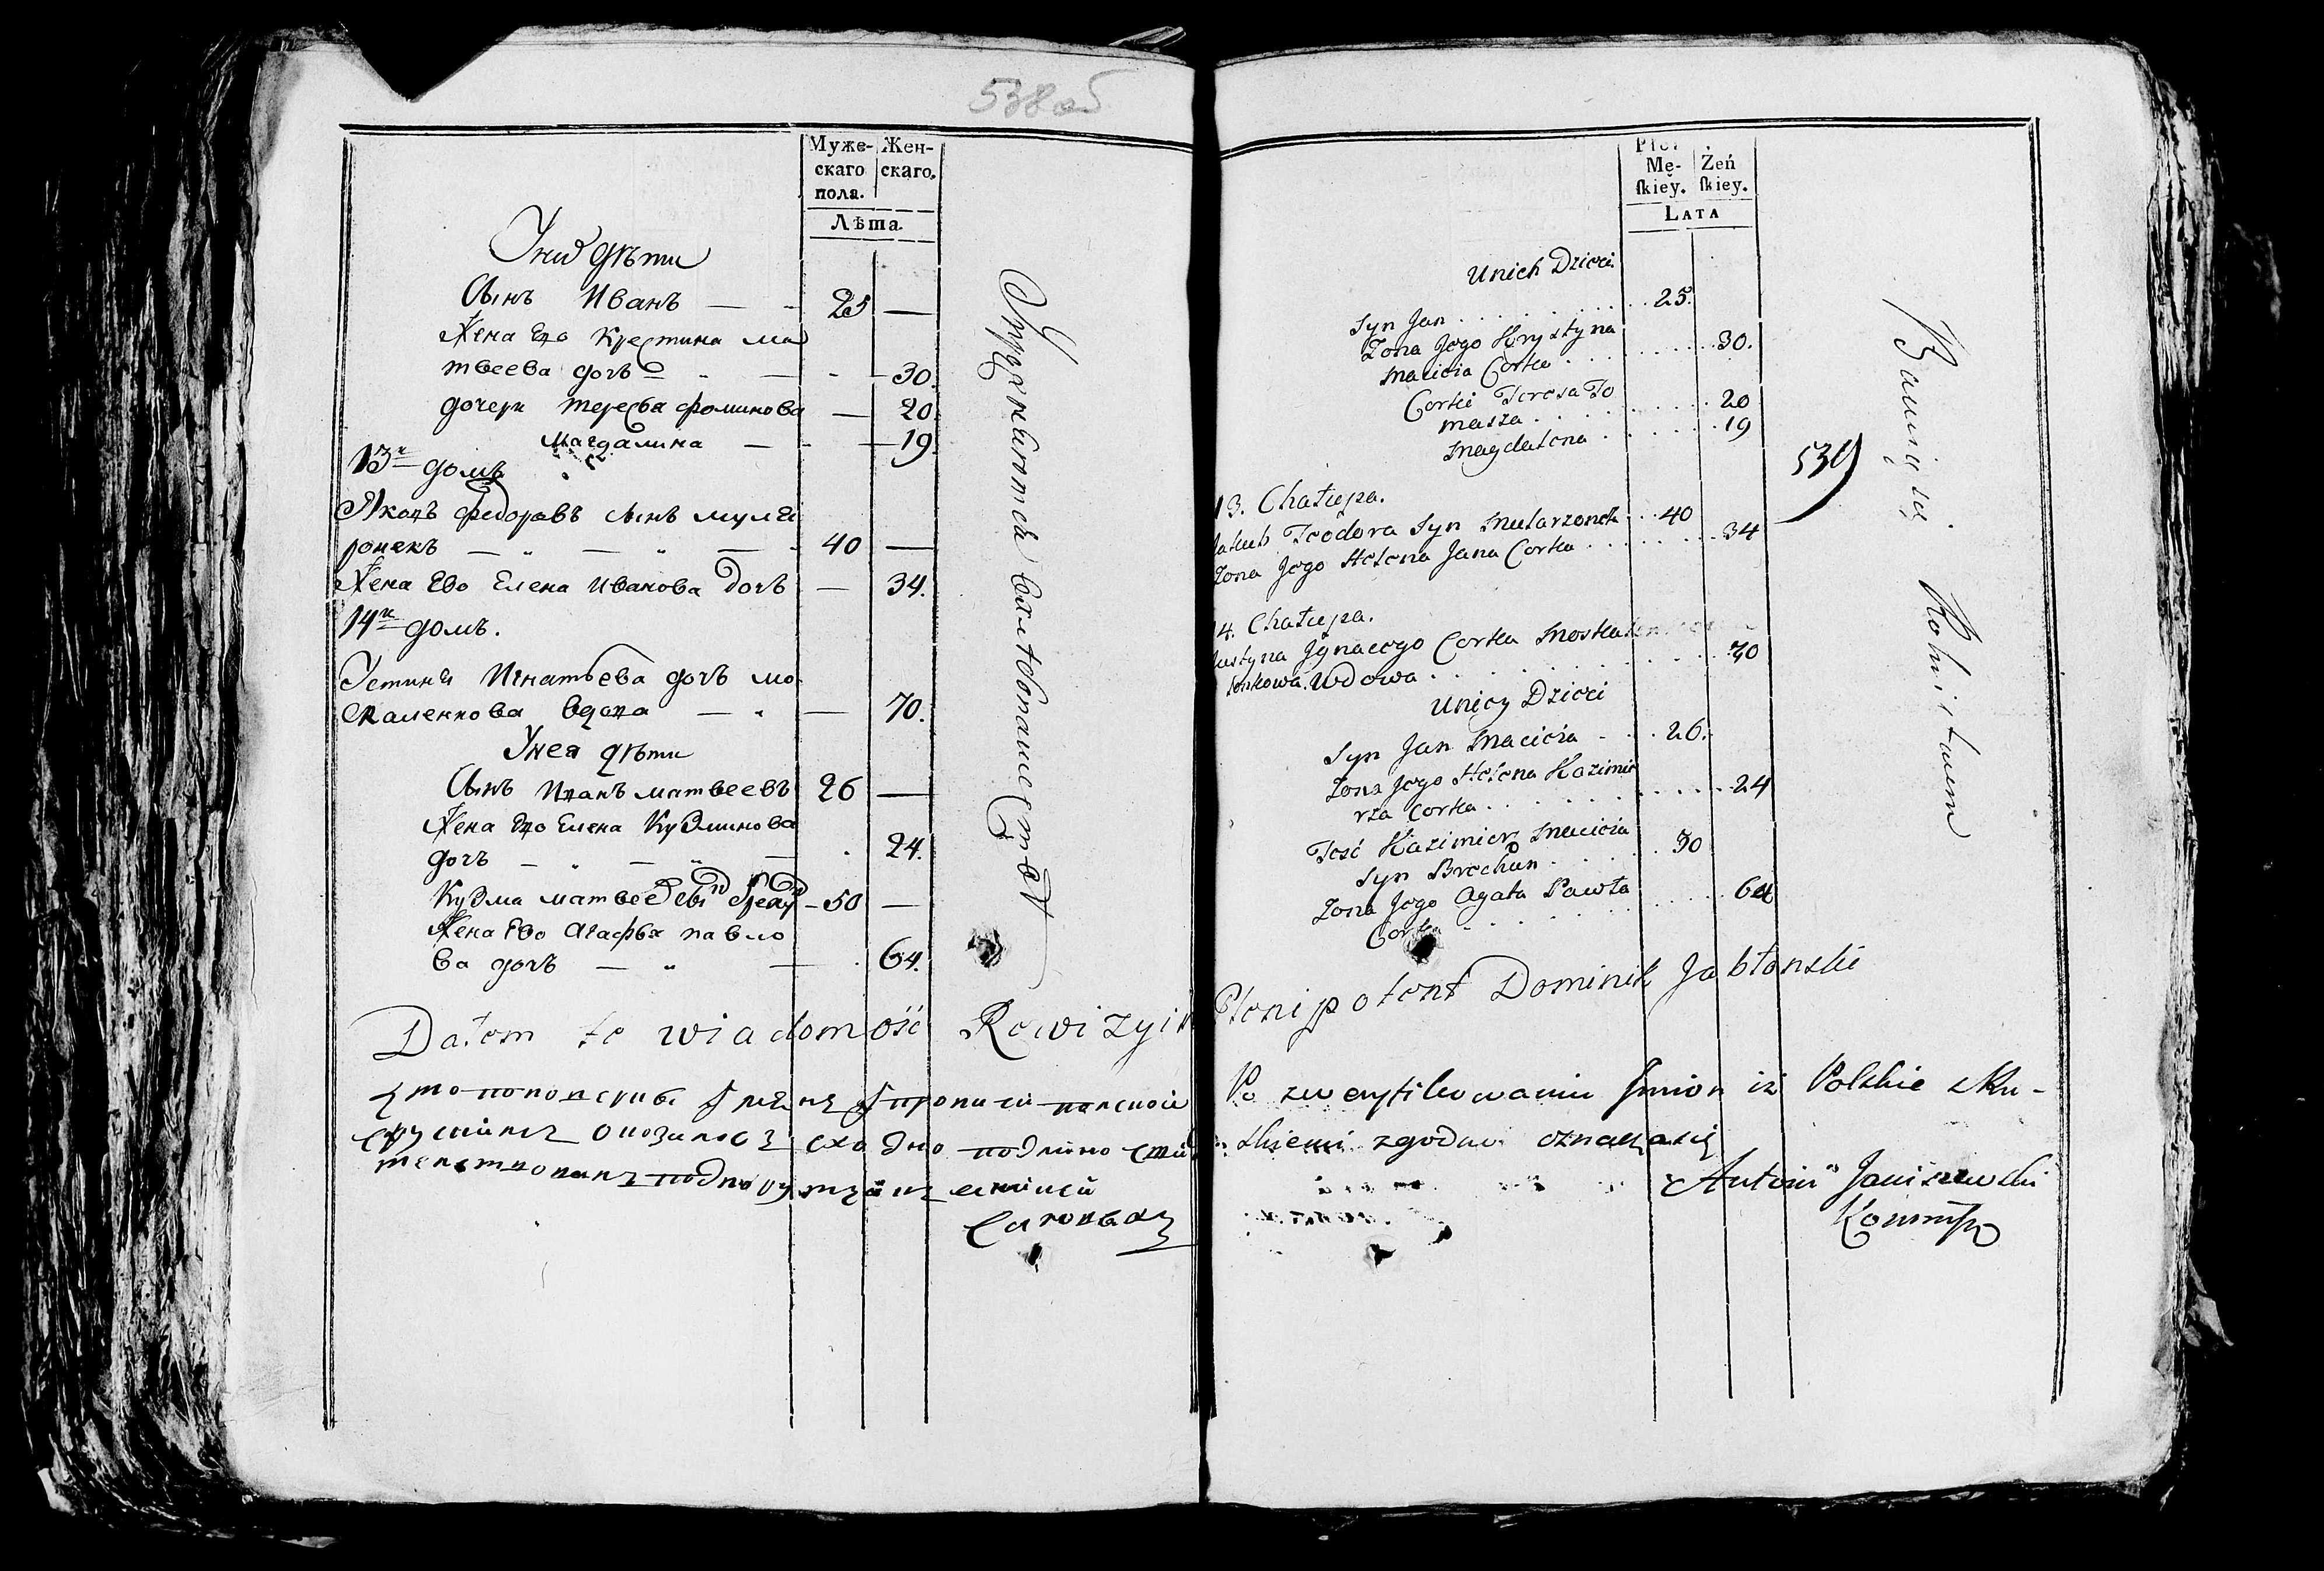 538 об
Муже-
скаго
пола.
Жен-
скаго.
Лѣта.
У них дѣти
Сынъ Иванъ — 25 —
Жена Его Крестина ма
твеева дочь — 30.
дочери Тересва фоминова — 20
Магдалина — 19.
13й домъ
Яковъ федоравъ сынъ мулѧ
ронекъ — 40 —
Жена Ево Елена Иванова дочь — 34.
14й домъ.
Устиня Игнатьева дочь мо
скаленкова вдова — 70.
У нея дѣти
Сынъ Иванъ матвеевъ 26 —
Жена Его Елена Кузминова
дочь — 24.
Кузма матвеевъ — 50 —
Жена Ево Агафья павло
ва дочь — 64.
Płci
Mę-
ſkieÿ.
Żeń
ſkiey.
LATA
Unich Dzieci
Syn Jan . . . 25.
Zona Jego Krystyna
Macieia Corka . . . 30.
Corki Teresa To
masza . . . 20
Magdalena . . . 19
13. Chałupa.
Jakub Teodora Syn Mularzonek . . 40
Zona Jego Helena Jana Corka . . . 34
14. Chałupa.
Justyna Jgnacego Corka Moskalen
kowa. Wdowa . . . 70
Unicy Dzieci
Syn Jan Macieia . . . 26.
Zona Jego Helena Kazimie
rza Corka . . . 24
Teść Kazimierz Macieia
Syn Brechun . . . 50
Zona Jego Agata Pawła
Corka . . . 64
539
Bawią się Rolnictwem
Dałem te wiadomość Rewizyi Plenipotent Dominik Jabłonski
Po zweryfikowaniu Jmion iż Polskie z Ru-
skiemi zgodne oznacza się
Antoni Janiszewski